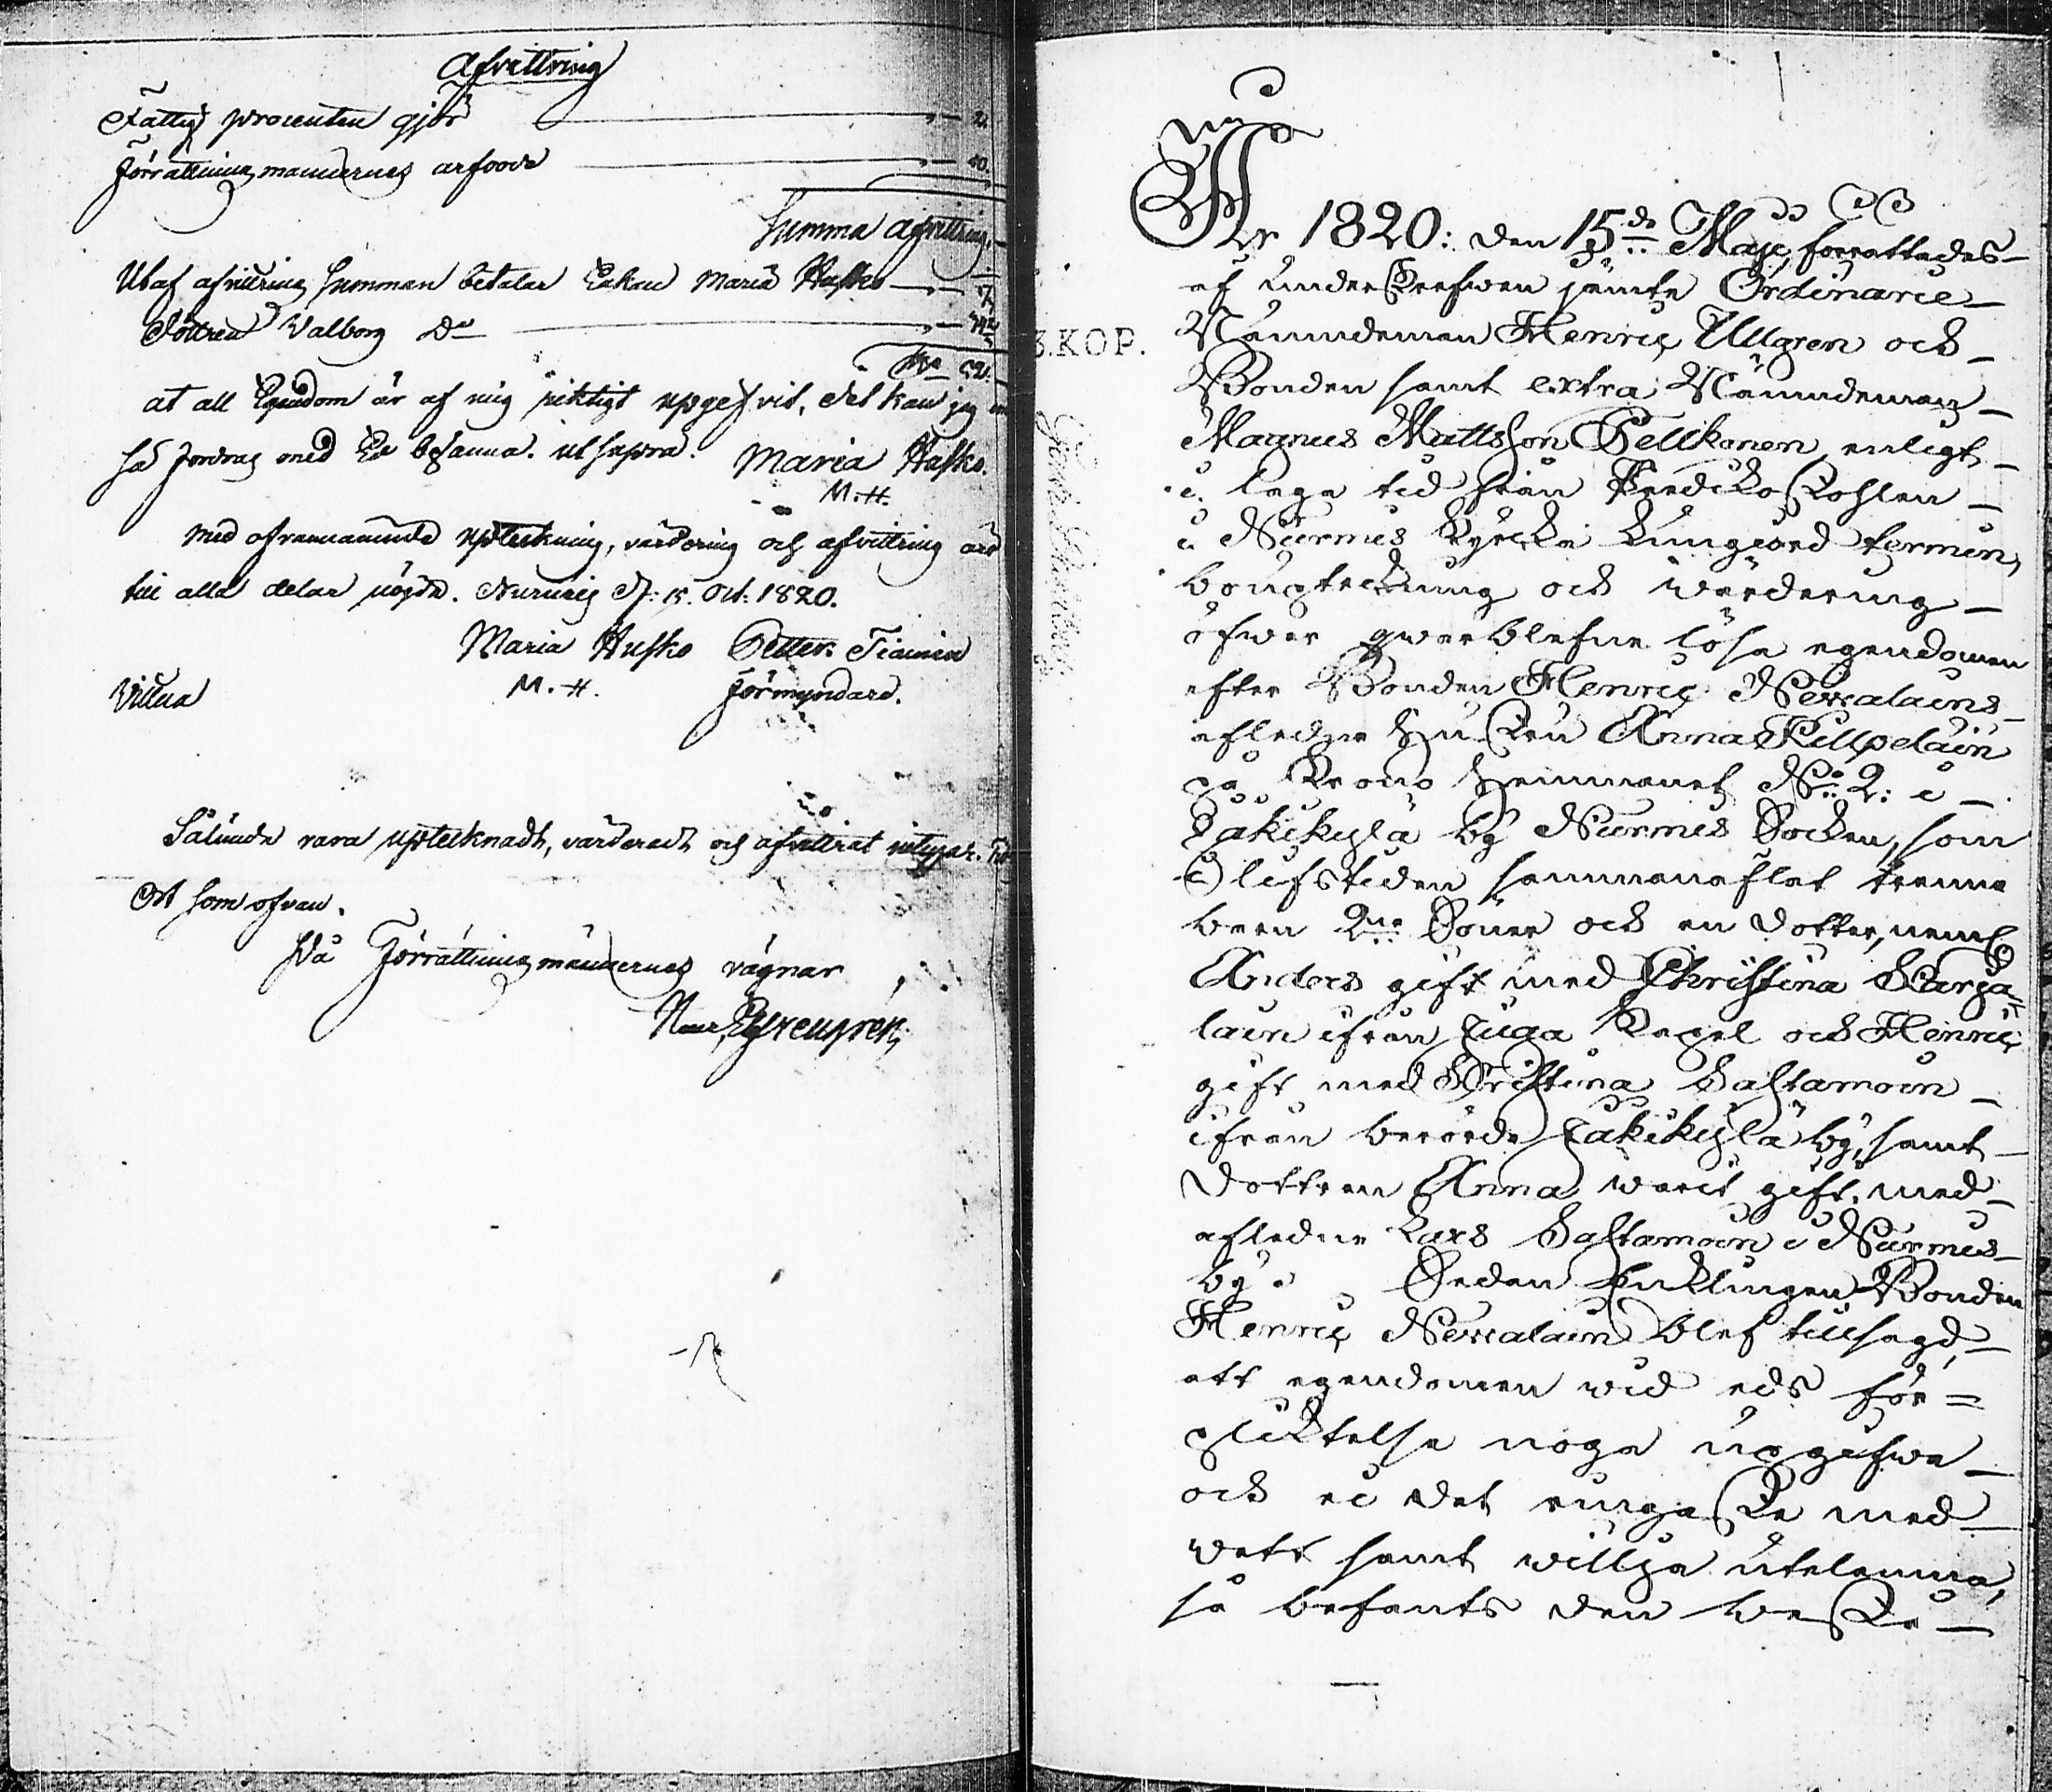 Afvittring
Fattig procenten gjör " 2.
Förrättningsmännernes arfvode " 40.
Summa Afvittring
Utaf afvittring summan betalar Enkan Maria Hasko
Dottren Valborg Do
at all Egendom är af mig riktigt upgefvit, det kan jag
så fordras med Ed besanna. ut supra. Maria Hasko.
M. H.
Med ofvannämnde upteckning, värdering och afvittring äro
till alla delar nögde. Nurmis d: 15. Oct: 1820.
Maria Husko Petter Tiainen
M. H. Förmyndare.
Vittna
Sålunda vara uptecknadt, värderadt och afvittrat intygar. Tid
Ort som ofvan.
På Förrättningsmännernes vägnar
År 1820: den 15de Maji förrättades
af underskrefwen jämte Ordinarie
Nämndeman Henric Ullgren och
Bonden samt extra Nämndeman
Magnus Mattsson Pellkonen, enligt
i laga tid från Prediko Stohlen
i Nurmis Kyrcka kungiord termin,
boupteckning och wärdering
öfwer qwarblefne lösa egendomen
efter Bonden Henric Nevalains
afledne Hustru Anna Killpelain
på Krono Hemmanet No: 2: i
Jokikylä by Nurmis Socken, som
i lifstiden sammanaflat trenne
barn 2ne Söner och en dotter, neml
Anders gift med Christina Karja=
lain ifrån Juga Kapel och Henric
gift med Christina Sastamoin
ifrån berörde Jokikylä by, samt
dottren Anna warit gift med
afledne Lars Sastamoin i Nurmis
by. Sedan Enklingen Bonden
Henric Nevalain blef tillsagd,
att egendomen wid eds för=
pliktelse noga upgifwa
och ei det ringaste med
wett samt willja utelemna,
så befants den bestå
S.KOP.